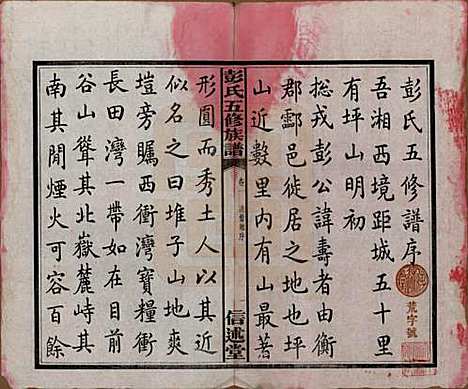 彭氏五修譜序
吾湘西境距城五十里
有坪山明初
總戎彭公諱壽者由衡
郡酃邑徙居之地也坪
山近數里内有山最著
彭氏五修族譜
卷
信述堂
形圓而秀土人以其近
似名之曰堆子山地爽
塏旁矚西衝灣寶糧衝
長田灣一帶如在目前
谷山聳其北嶽麓峙其
南其閒煙火可容百餘